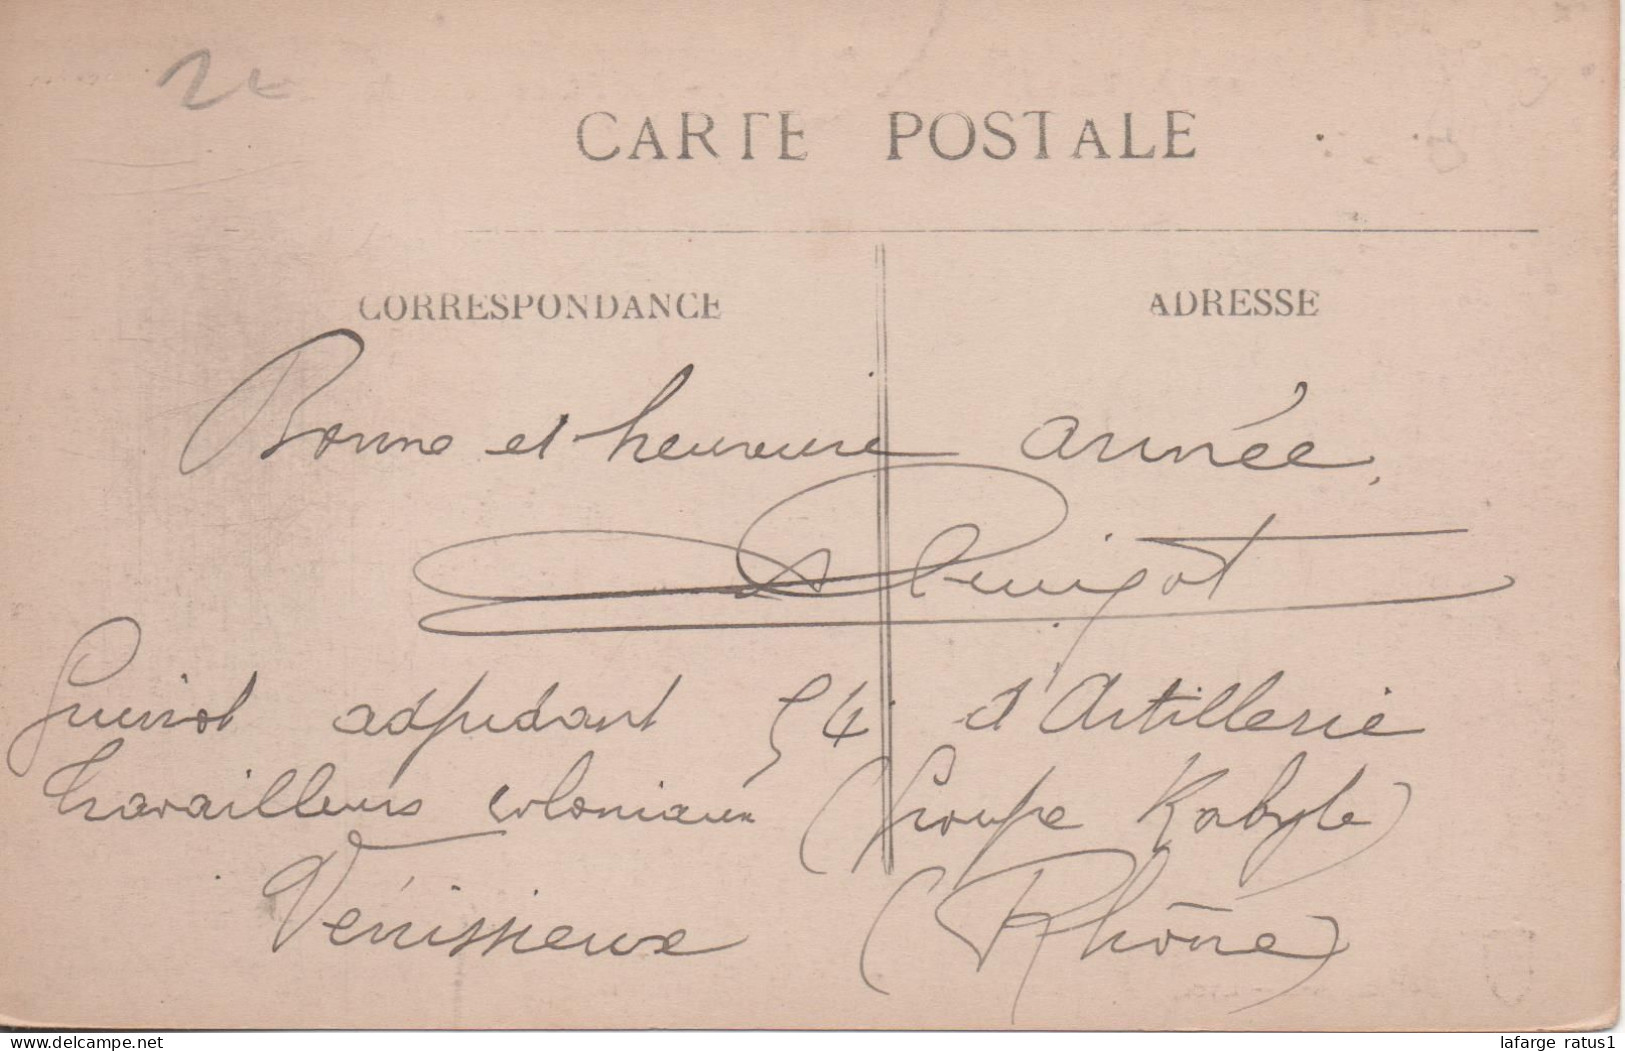 2€
CARTE POSTALE
CORRESPONDANCE
ADRESSE
Bonne et heureuse année,
Guinot adjudant 54 d'Artillerie
travailleurs coloniaux (Groupe Kabyle)
Vénissieux (Rhône)
www.delcampe.net
lafarge_ratus1